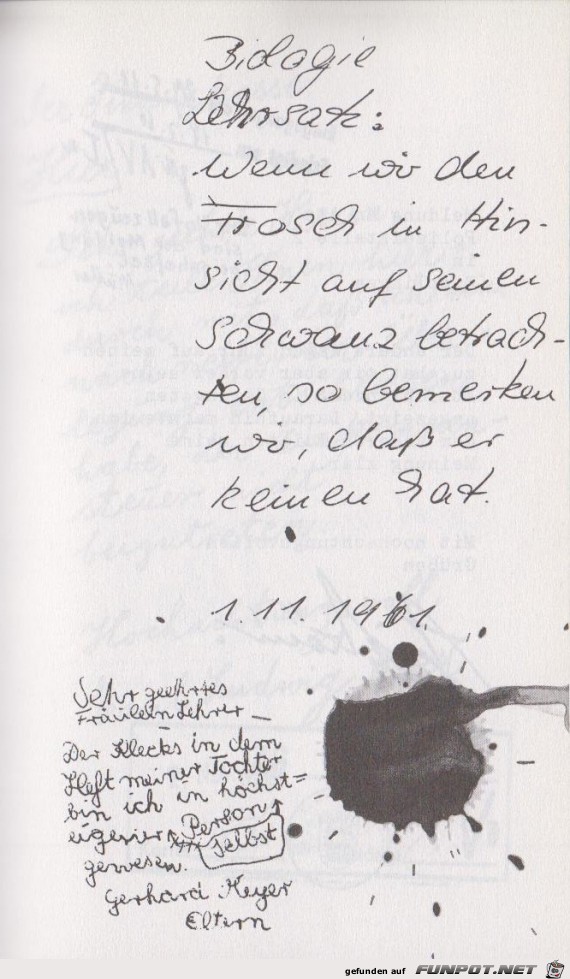 Biologie
Lehrsatz:
Wenn wir den
Frosch in Hin-
sicht auf seinen
Schwanz betrach-
ten, so bemerken
wir, daß er
keinen hat.
1.11.1961.
Sehr geehrtes
Fräulein Lehrer
Der Klecks in dem
Heft meiner Tochter
bin ich in höchst=
eigener Person
selbst
gewesen.
Gerhard Meyer
Eltern
gefunden auf FUNPOT.NET